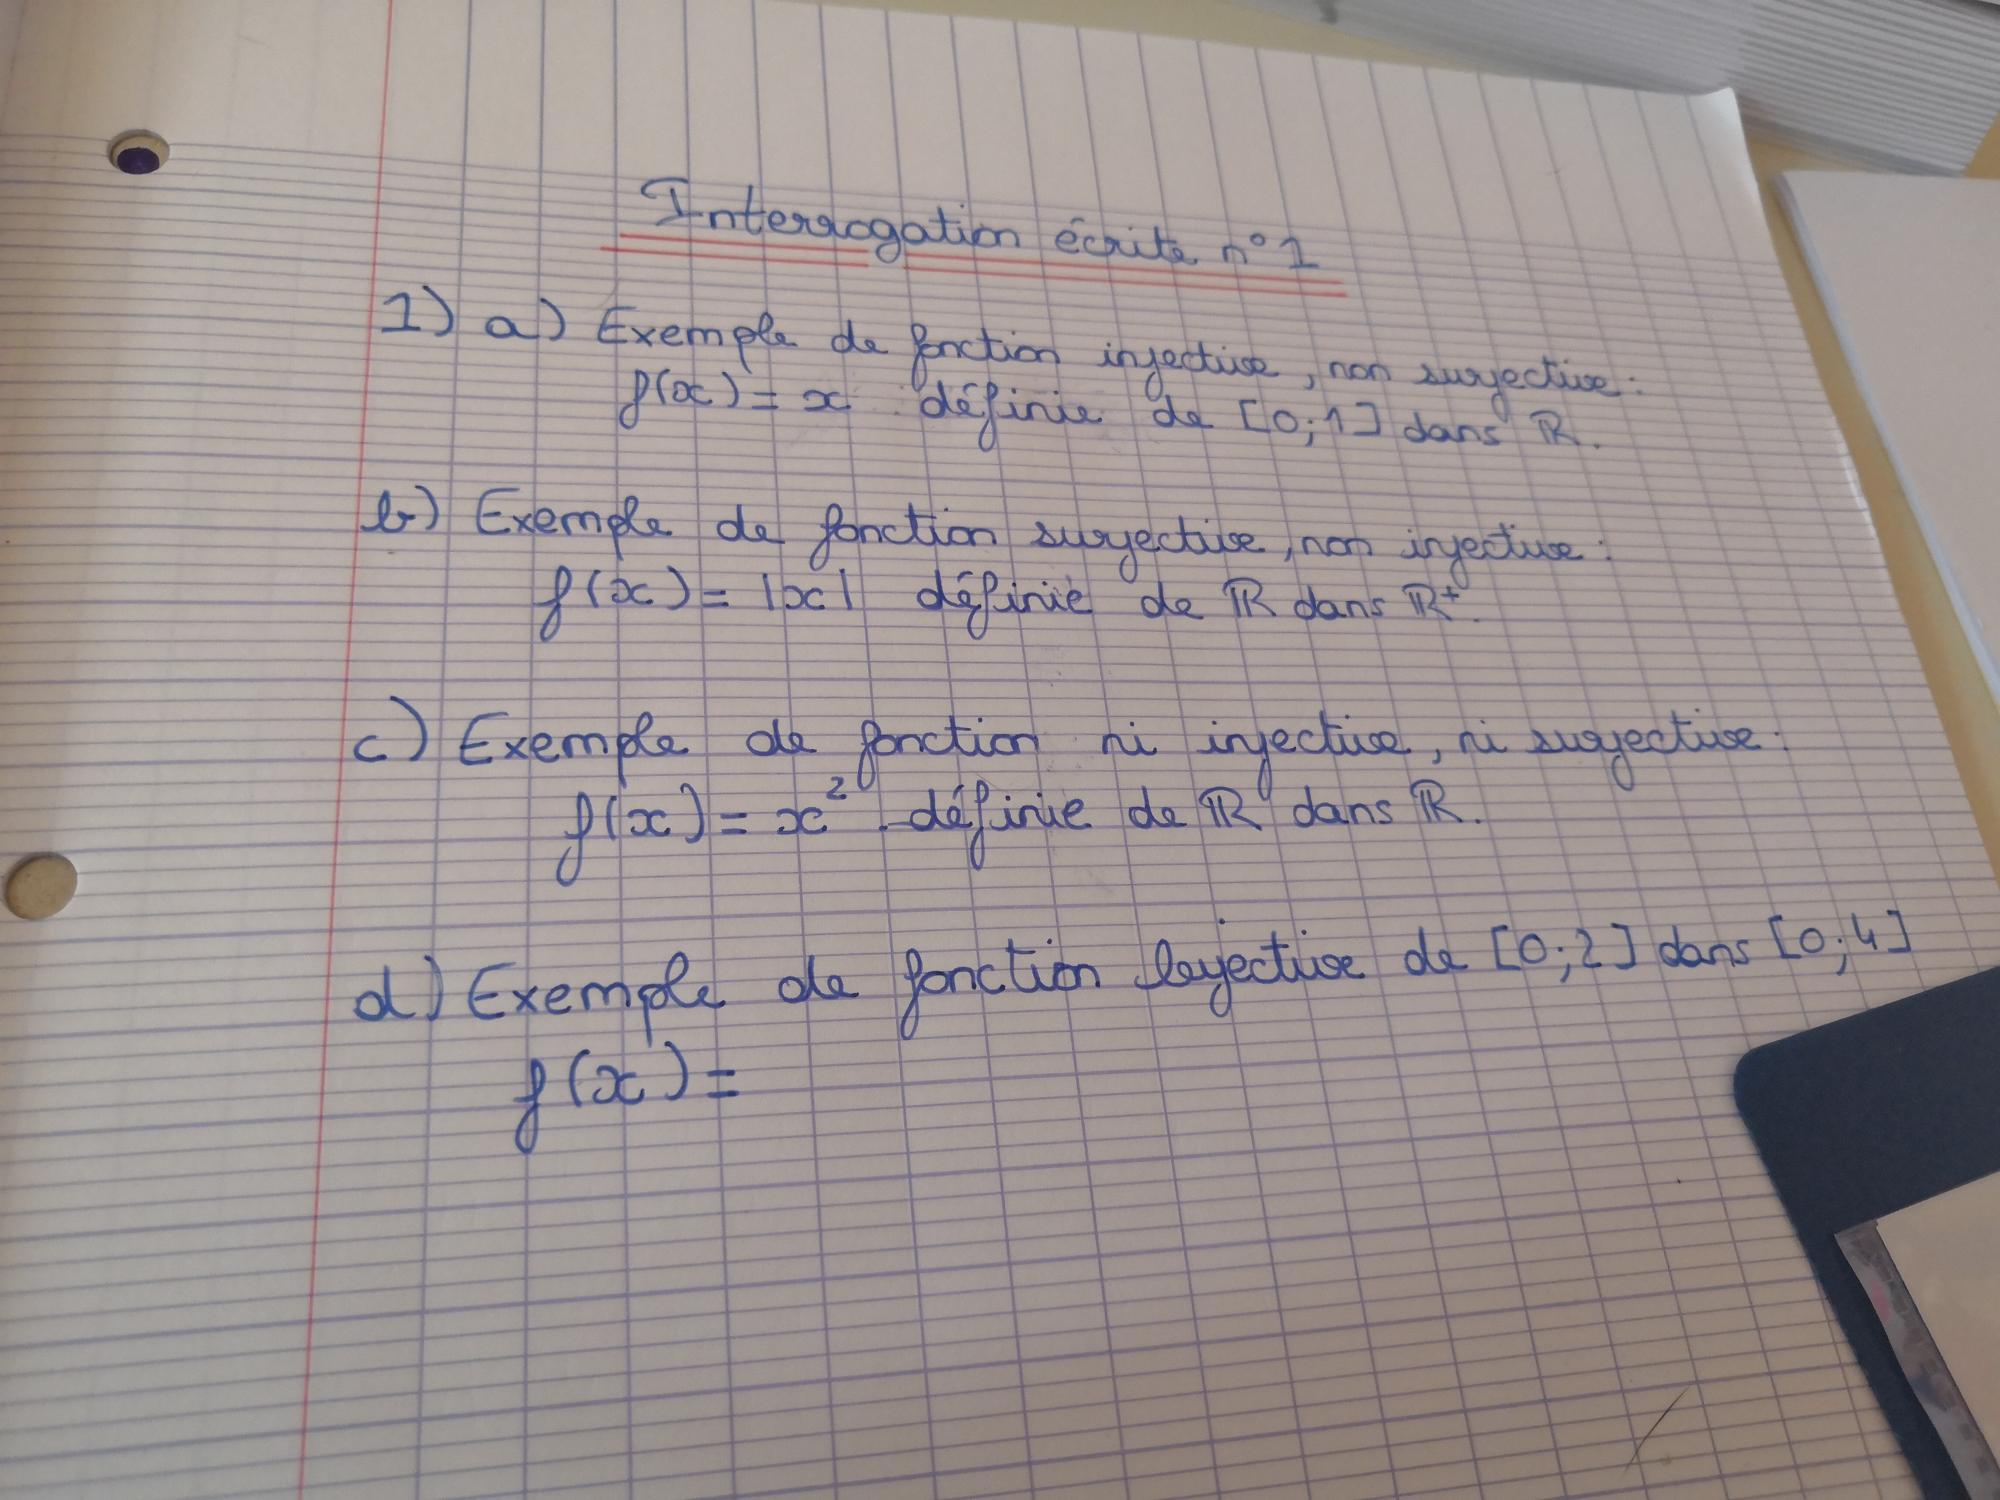 Interrogation écrite n°1
1) a) Exemple de fonction injective, non surjective:
f(x) = x définie de [0;1] dans ℝ.
b) Exemple de fonction surjective, non injective:
f(x) = |x| définie de ℝ dans ℝ⁺.
c) Exemple de fonction ni injective, ni surjective:
f(x) = x² définie de ℝ dans ℝ.
d) Exemple de fonction bijective de [0;2] dans [0;4]
f(x) =